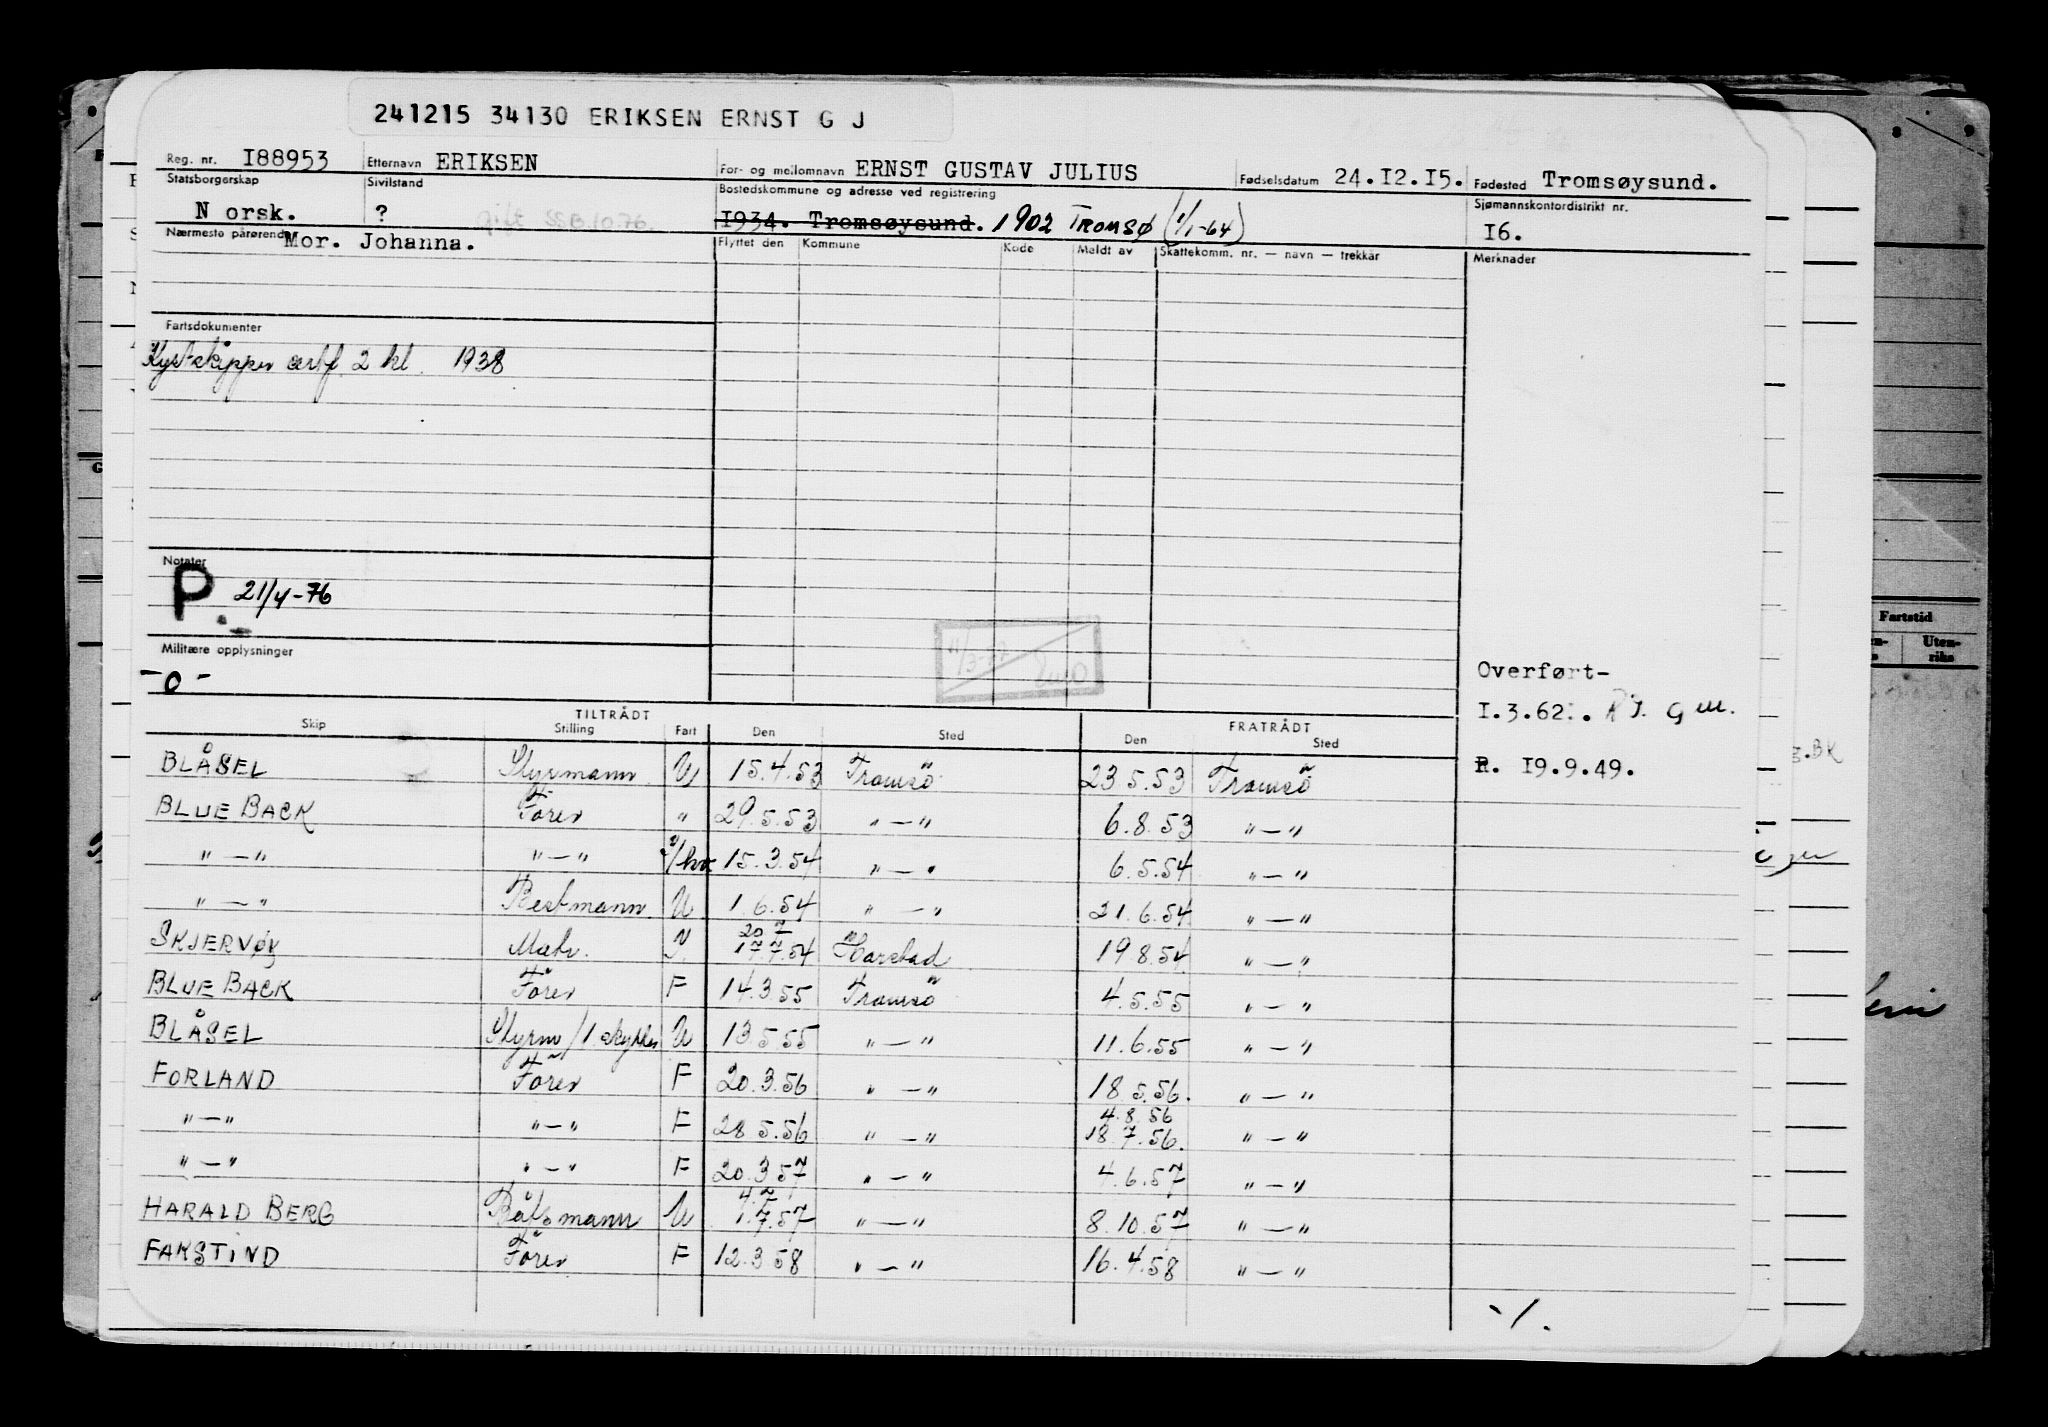 241215 34130 ERIKSEN ERNST G J
Reg. nr. I88953 Etternavn ERIKSEN For- og mellomnavn ERNST GUSTAV JULIUS Fødselsdatum 24.I2.I5. Fødested Tromsøysund.
Statsborgerskap Sivilstand Bostedskommune og adresse ved registrering Sjømannskontordistrikt nr.
N orsk. ? gift SSB 10.76. I934. Tromsøysund. 1902 TROMSØ (1/1-64) I6.
Nærmeste pårørende Mor. Johanna. Flyttet den Kommune Kode Meldt av Skattekomm. nr. — navn — trekkår Merknader
Fartsdokumenter
Kystskipper certf. 2 kl. 1938
Notater
P 21/4-76
Militære opplysninger
-0-
Overført-
I.3.62.
R. I9.9.49.
TILTRÅDT FRATRÅDT
Skip Stilling Fart Den Sted Den Sted
BLÅSEL Styrmann U 15.4.53 Tromsö 23.5.53 Tromsö
BLUE BACK Förer " 29.5.53 "—" 6.8.53 "—"
"—" "—" 15.3.54 "—" 6.5.54 "—"
"—" Bestmann U 1.6.54 "—" 21.6.54 "—"
20 7
SKJERVØY Matr. U 17.7.54 Harstad 19.8.54 "—"
BLUE BACK Förer F 14.3.55 Tromsö 4.5.55 "—"
BLÅSEL Styrm/1.skytter U 13.5.55 "—" 11.6.55 "—"
FORLAND Förer F 20.3.56 "—" 18.5.56. "—"
4.8.56
"—" "—" F 28.5.56 "—" 18.7.56. "—"
"—" "—" F 20.3.57 "—" 4.6.57 "—"
4.7
HARALD BERG Båtsmann U 1.7.57 "—" 8.10.57 "—"
FAKSTIND Förer F 12.3.58 "—" 16.4.58 "—"
-/.
8 9
Fartstid
Uten-
riks